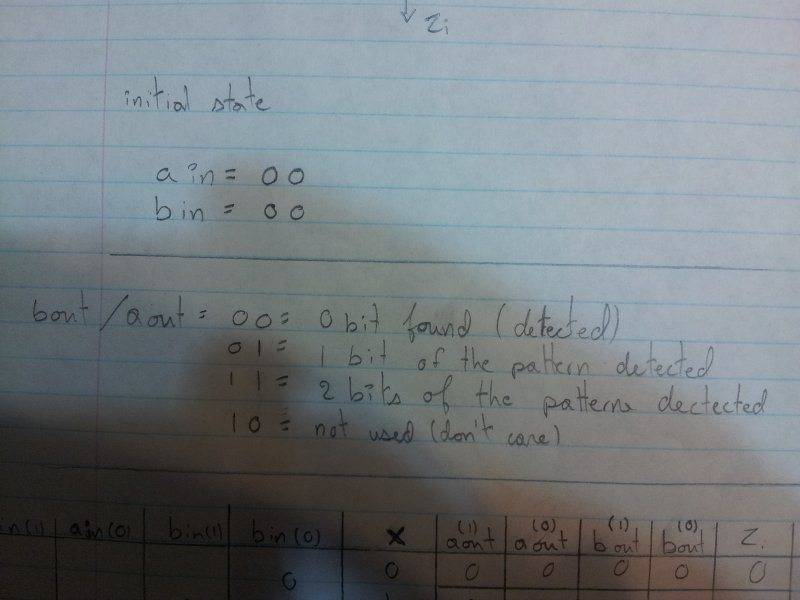 Zi
initial state
ain = 00
bin = 00
bout/aout = 00 = 0 bit found (detected)
01 = 1 bit of the pattern detected
11 = 2 bits of the patterns dectected
10 = not used (don't care)
in(1) ain(0) bin(1) bin(0) X aout(1) aout(0) bout(1) bout(0) Zi
0 0 0 0 0 0 0